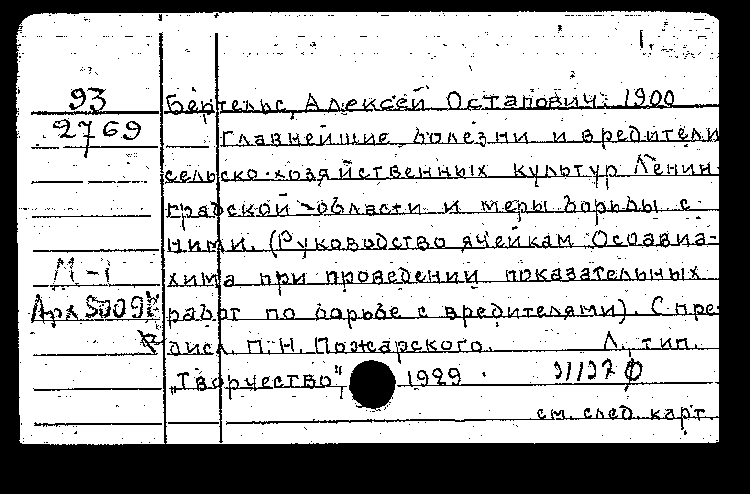 1.
93
Бертельс, Алексей Остапович. 1900
2769
Главнейшие болезни и вредители
сельско-хозяйственных культур Ленин-
градской области и меры борьбы с
ними. (Руководство ячейкам Осоавиа-
М-1
хима при проведении показательных
Арх
работ по борьбе с вредителями). С пре-
дисл. П. Н. Пожарского. Л., тип.
„Творчество", 1929.
см. след. карт.